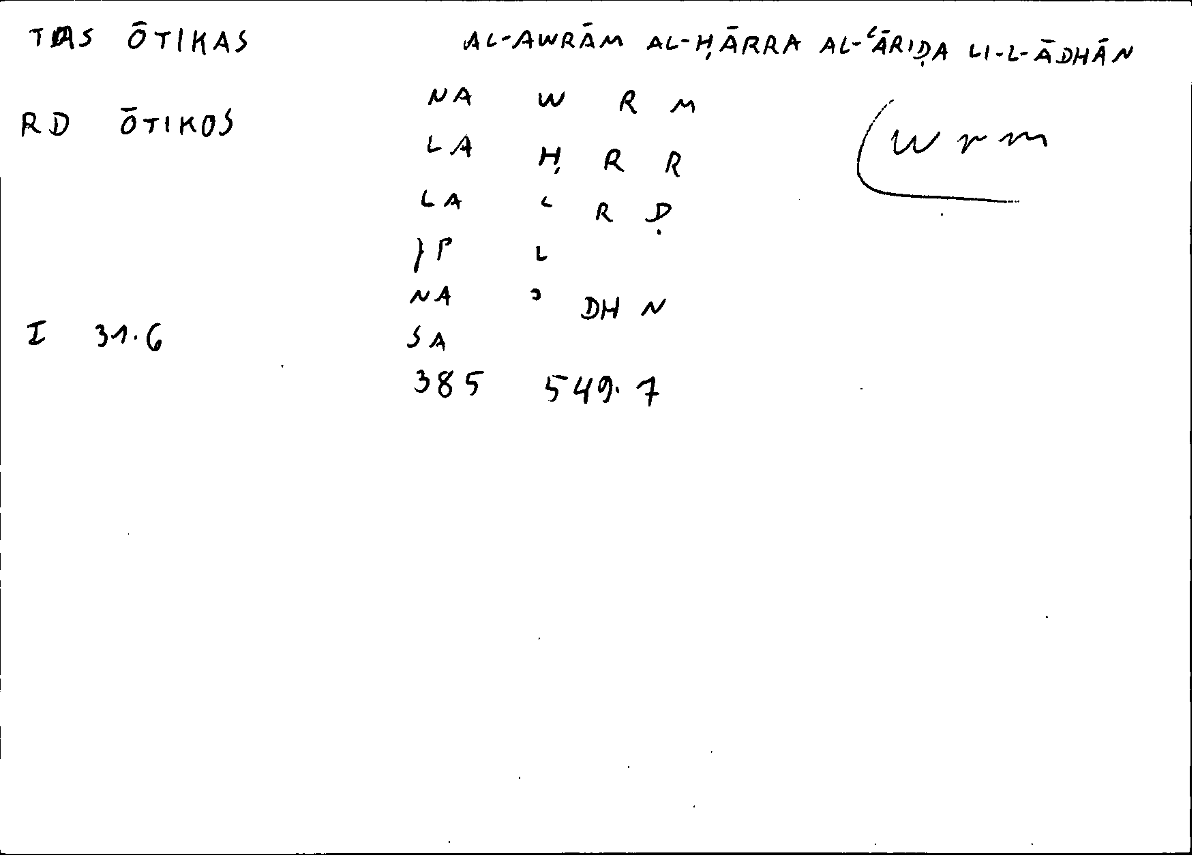 TAS ŌTIKAS AL-AWRĀM AL-ḤĀRRA AL-ʿĀRIḌA LI-L-ĀDHĀN
RD ŌTIKOS NA W R M (wrm
LA Ḥ R R
LA ʿ R Ḍ
}P L
NA ʾ DH N
I 31.6 SA
385 549.7